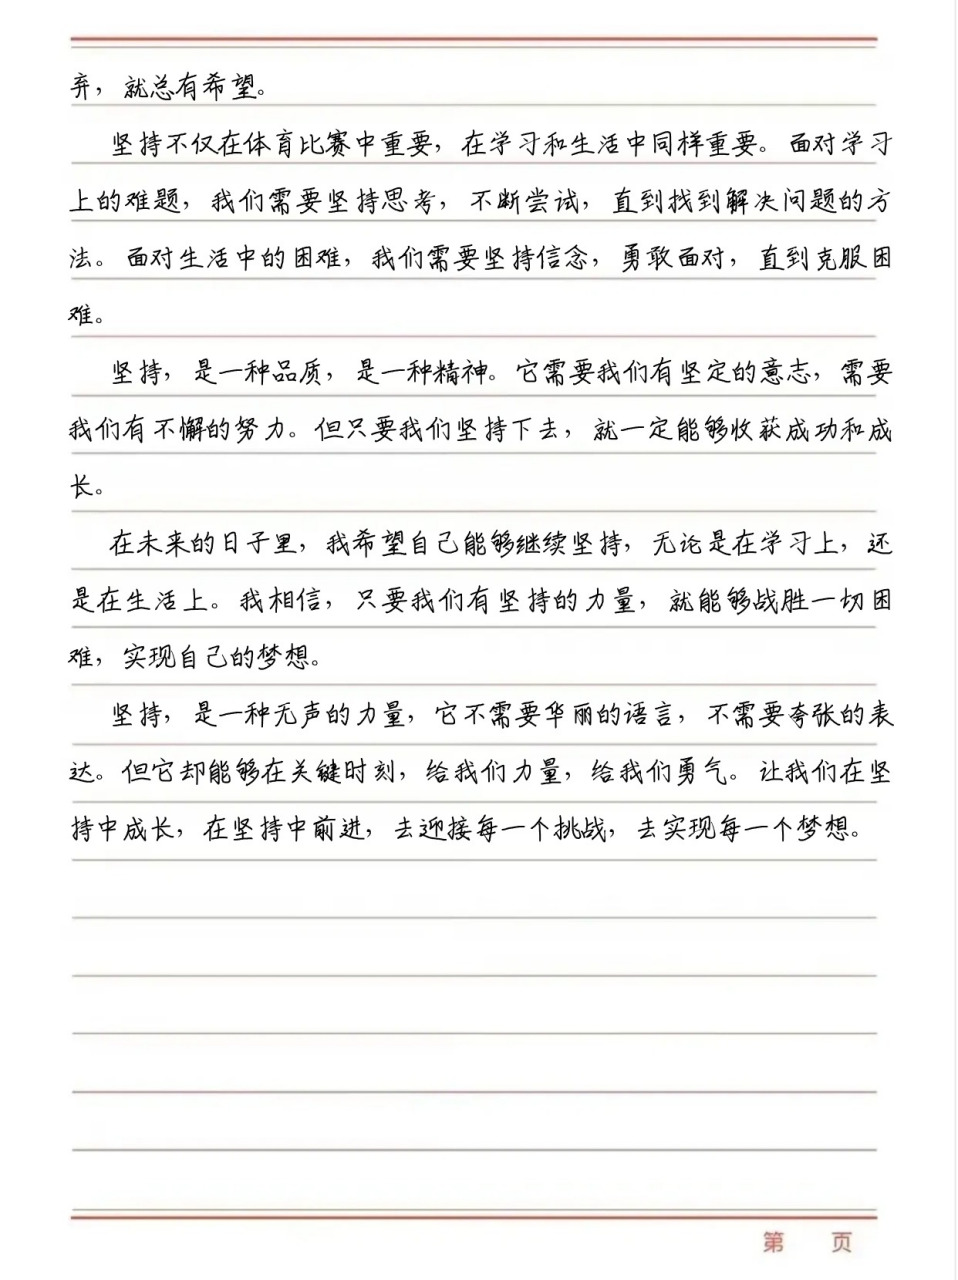 弃，就总有希望。
坚持不仅在体育比赛中重要，在学习和生活中同样重要。面对学习
上的难题，我们需要坚持思考，不断尝试，直到找到解决问题的方
法。面对生活中的困难，我们需要坚持信念，勇敢面对，直到克服困
难。
坚持，是一种品质，是一种精神。它需要我们有坚定的意志，需要
我们有不懈的努力。但只要我们坚持下去，就一定能够收获成功和成
长。
在未来的日子里，我希望自己能够继续坚持，无论是在学习上，还
是在生活上。我相信，只要我们有坚持的力量，就能够战胜一切困
难，实现自己的梦想。
坚持，是一种无声的力量，它不需要华丽的语言，不需要夸张的表
达。但它却能够在关键时刻，给我们力量，给我们勇气。让我们在坚
持中成长，在坚持中前进，去迎接每一个挑战，去实现每一个梦想。
第 页